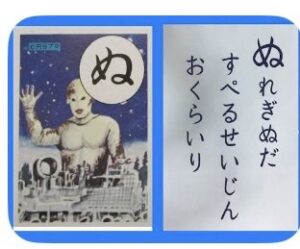 ぬ
ぬれぎぬだ
すぺるせいじん
おくらいり